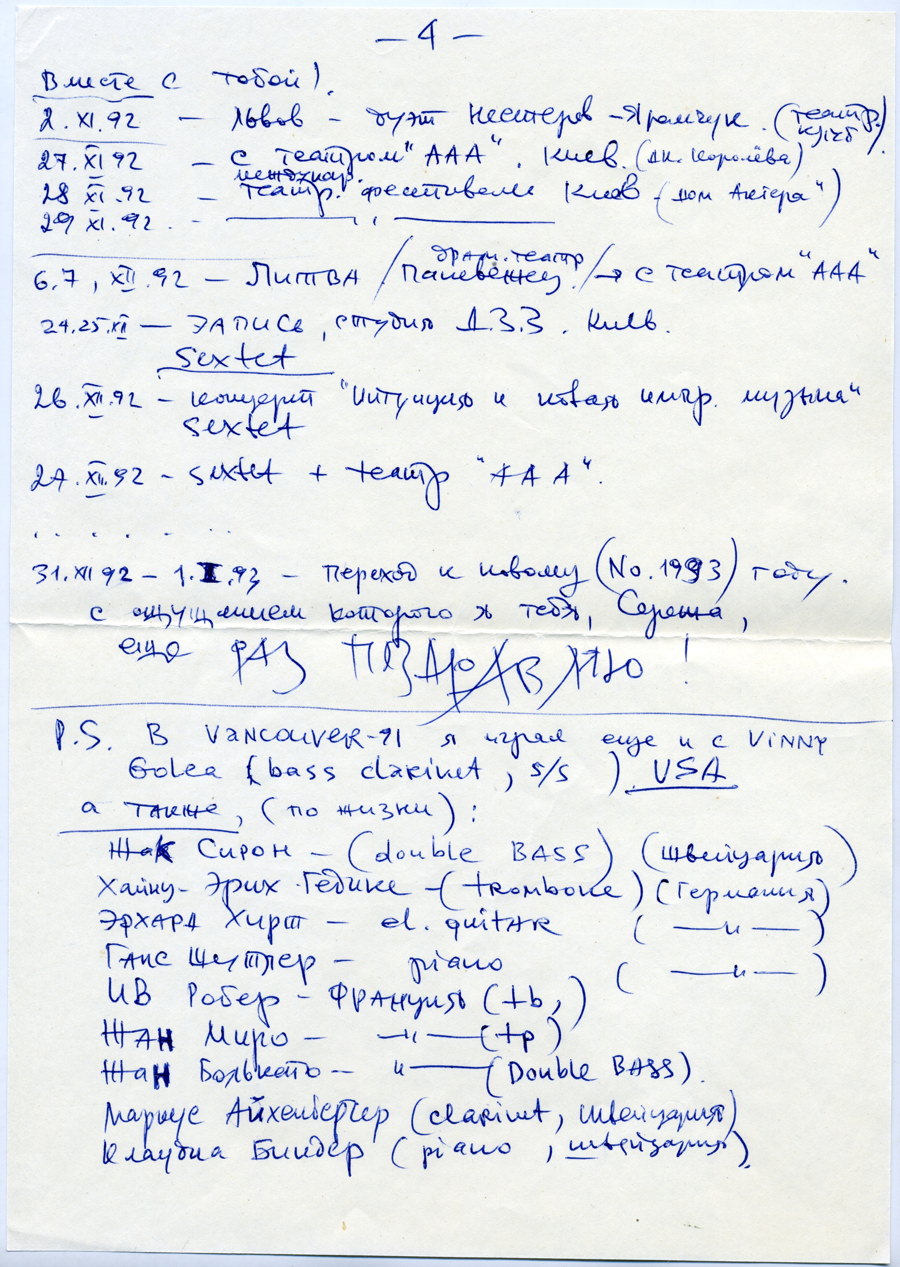 — 4 —
Вместе с тобой!
2.XI.92 — Львов — дуэт Нестеров – Яремчук. (театр. клуб)
27.XI 92 — с театром "ААА". Киев. (дк. Королёва)
междунар.
28 XI.92 — театр. фестивале Киев (Дом Актера")
29 XI.92. — ——— ,, ———
драм. театр
6.7, XII.92 — Литва /Паневежец/ → с театром "ААА"
24.25.XII — запись, студия Д.З.З. Киев.
Sextet
26.XII.92 — концерт "Интуиция и новая импр. музыка"
Sextet
27.XII.92 — sextet + театр "ААА".
. . . . . . . .
31.XII 92 – 1.I.93 — переход к новому (No.1993) году.
с ощущением которого я тебя, Сережа,
еще РАЗ ПОЗДРАВЛЯЮ!
P.S. В VANCOUVER-91 я играл еще и с VINNY
Golea (bass clarinet, s/s) USA
а также, (по жизни):
Жак Сирон — (double BASS) (Швейцария)
Хайнц-Эрих Гедике — (trombone) (Германия)
Эрхард Хирт — el. guitar ( —— " —— )
Ганс Шутлер — piano ( —— " —— )
Ив Робер — Франция (tb,)
Жан Миро — — " — (tp)
Жан Болькато — " —— (Double BASS).
Маркус Айхенбергер (clarinet, Швейцария)
Клаудиа Биндер (piano, швейцария).